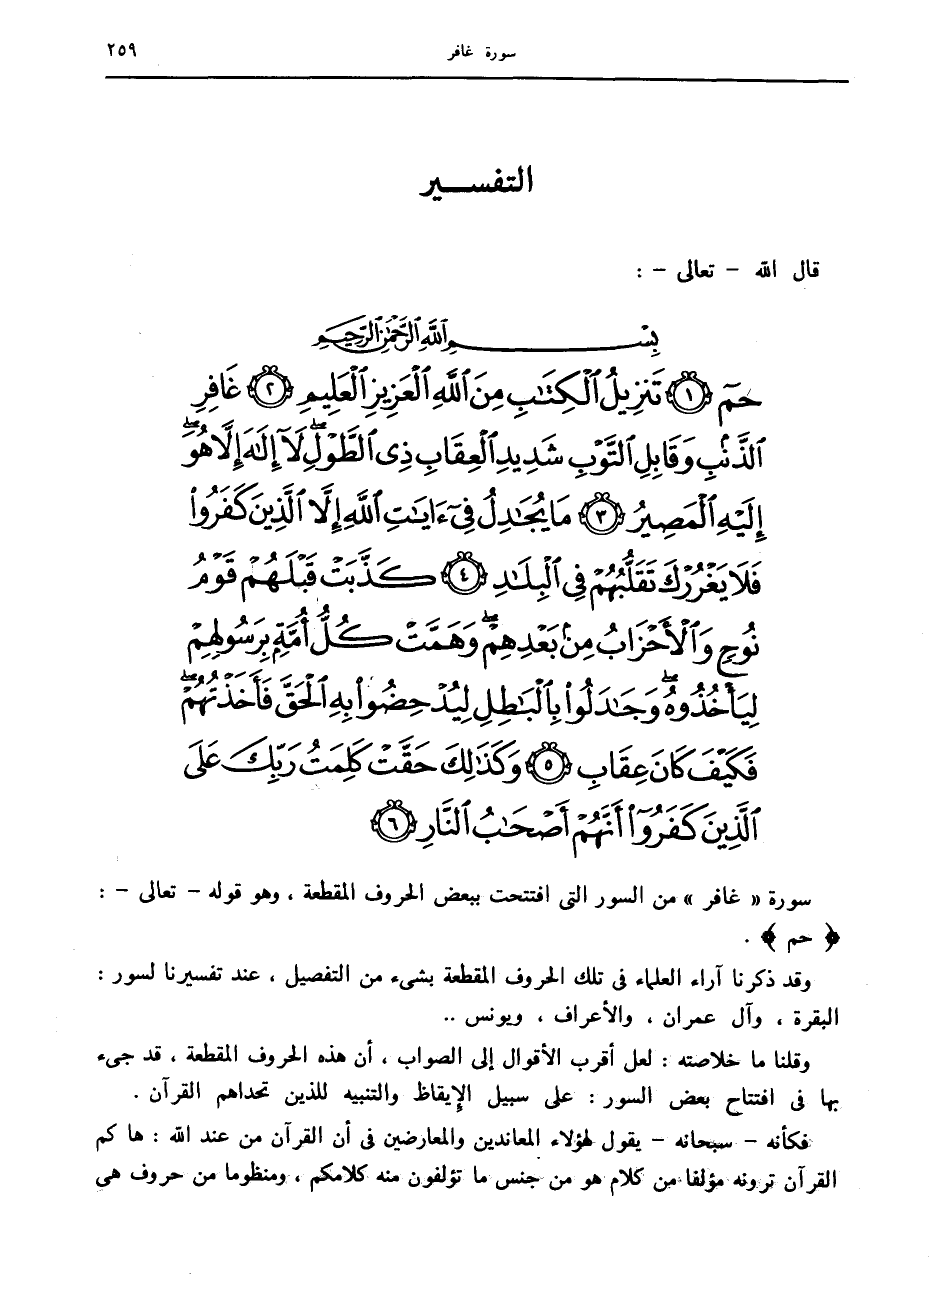 سورة غافر ٢٥٩
التفسير
قال الله - تعالى - :
بِسْمِ اللَّهِ الرَّحْمَٰنِ الرَّحِيمِ
حمٓ ١ تَنزِيلُ ٱلْكِتَٰبِ مِنَ ٱللَّهِ ٱلْعَزِيزِ ٱلْعَلِيمِ ٢ غَافِرِ
ٱلذَّنۢبِ وَقَابِلِ ٱلتَّوْبِ شَدِيدِ ٱلْعِقَابِ ذِى ٱلطَّوْلِۖ لَآ إِلَٰهَ إِلَّا هُوَۖ
إِلَيْهِ ٱلْمَصِيرُ ٣ مَا يُجَٰدِلُ فِىٓ ءَايَٰتِ ٱللَّهِ إِلَّا ٱلَّذِينَ كَفَرُوا۟
فَلَا يَغْرُرْكَ تَقَلُّبُهُمْ فِى ٱلْبِلَٰدِ ٤ كَذَّبَتْ قَبْلَهُمْ قَوْمُ
نُوحٍ وَٱلْأَحْزَابُ مِنۢ بَعْدِهِمْۖ وَهَمَّتْ كُلُّ أُمَّةٍۭ بِرَسُولِهِمْ
لِيَأْخُذُوهُۖ وَجَٰدَلُوا۟ بِٱلْبَٰطِلِ لِيُدْحِضُوا۟ بِهِ ٱلْحَقَّ فَأَخَذْتُهُمْۖ
فَكَيْفَ كَانَ عِقَابِ ٥ وَكَذَٰلِكَ حَقَّتْ كَلِمَتُ رَبِّكَ عَلَى
ٱلَّذِينَ كَفَرُوٓا۟ أَنَّهُمْ أَصْحَٰبُ ٱلنَّارِ ٦
سورة « غافر » من السور التى افتتحت ببعض الحروف المقطعة ، وهو قوله - تعالى - :
﴿ حم ﴾ .
وقد ذكرنا آراء العلماء فى تلك الحروف المقطعة بشىء من التفصيل ، عند تفسيرنا لسور :
البقرة ، وآل عمران ، والأعراف ، ويونس ..
وقلنا ما خلاصته : لعل أقرب الأقوال إلى الصواب ، أن هذه الحروف المقطعة ، قد جىء
بها فى افتتاح بعض السور : على سبيل الإيقاظ والتنبيه للذين تحداهم القرآن .
فكأنه - سبحانه - يقول لهؤلاء المعاندين والمعارضين فى أن القرآن من عند الله : ها كم
القرآن ترونه مؤلفا من كلام هو من جنس ما تؤلفون منه كلامكم ، ومنظوما من حروف هى